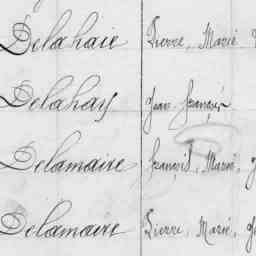 Delahaie Pierre, Marie
Delahay Jean François
Delamaire François, Marie, J
Delamaire Pierre, Marie, J